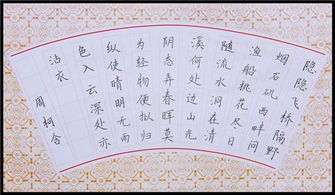 隐隐飞桥隔野
烟石矶西畔问
渔船桃花尽日
随流水洞在清
溪何处边山光
阴态弄春晖莫
为轻物便拟归
纵使晴明无雨
色入云深处亦
沾衣
周柯